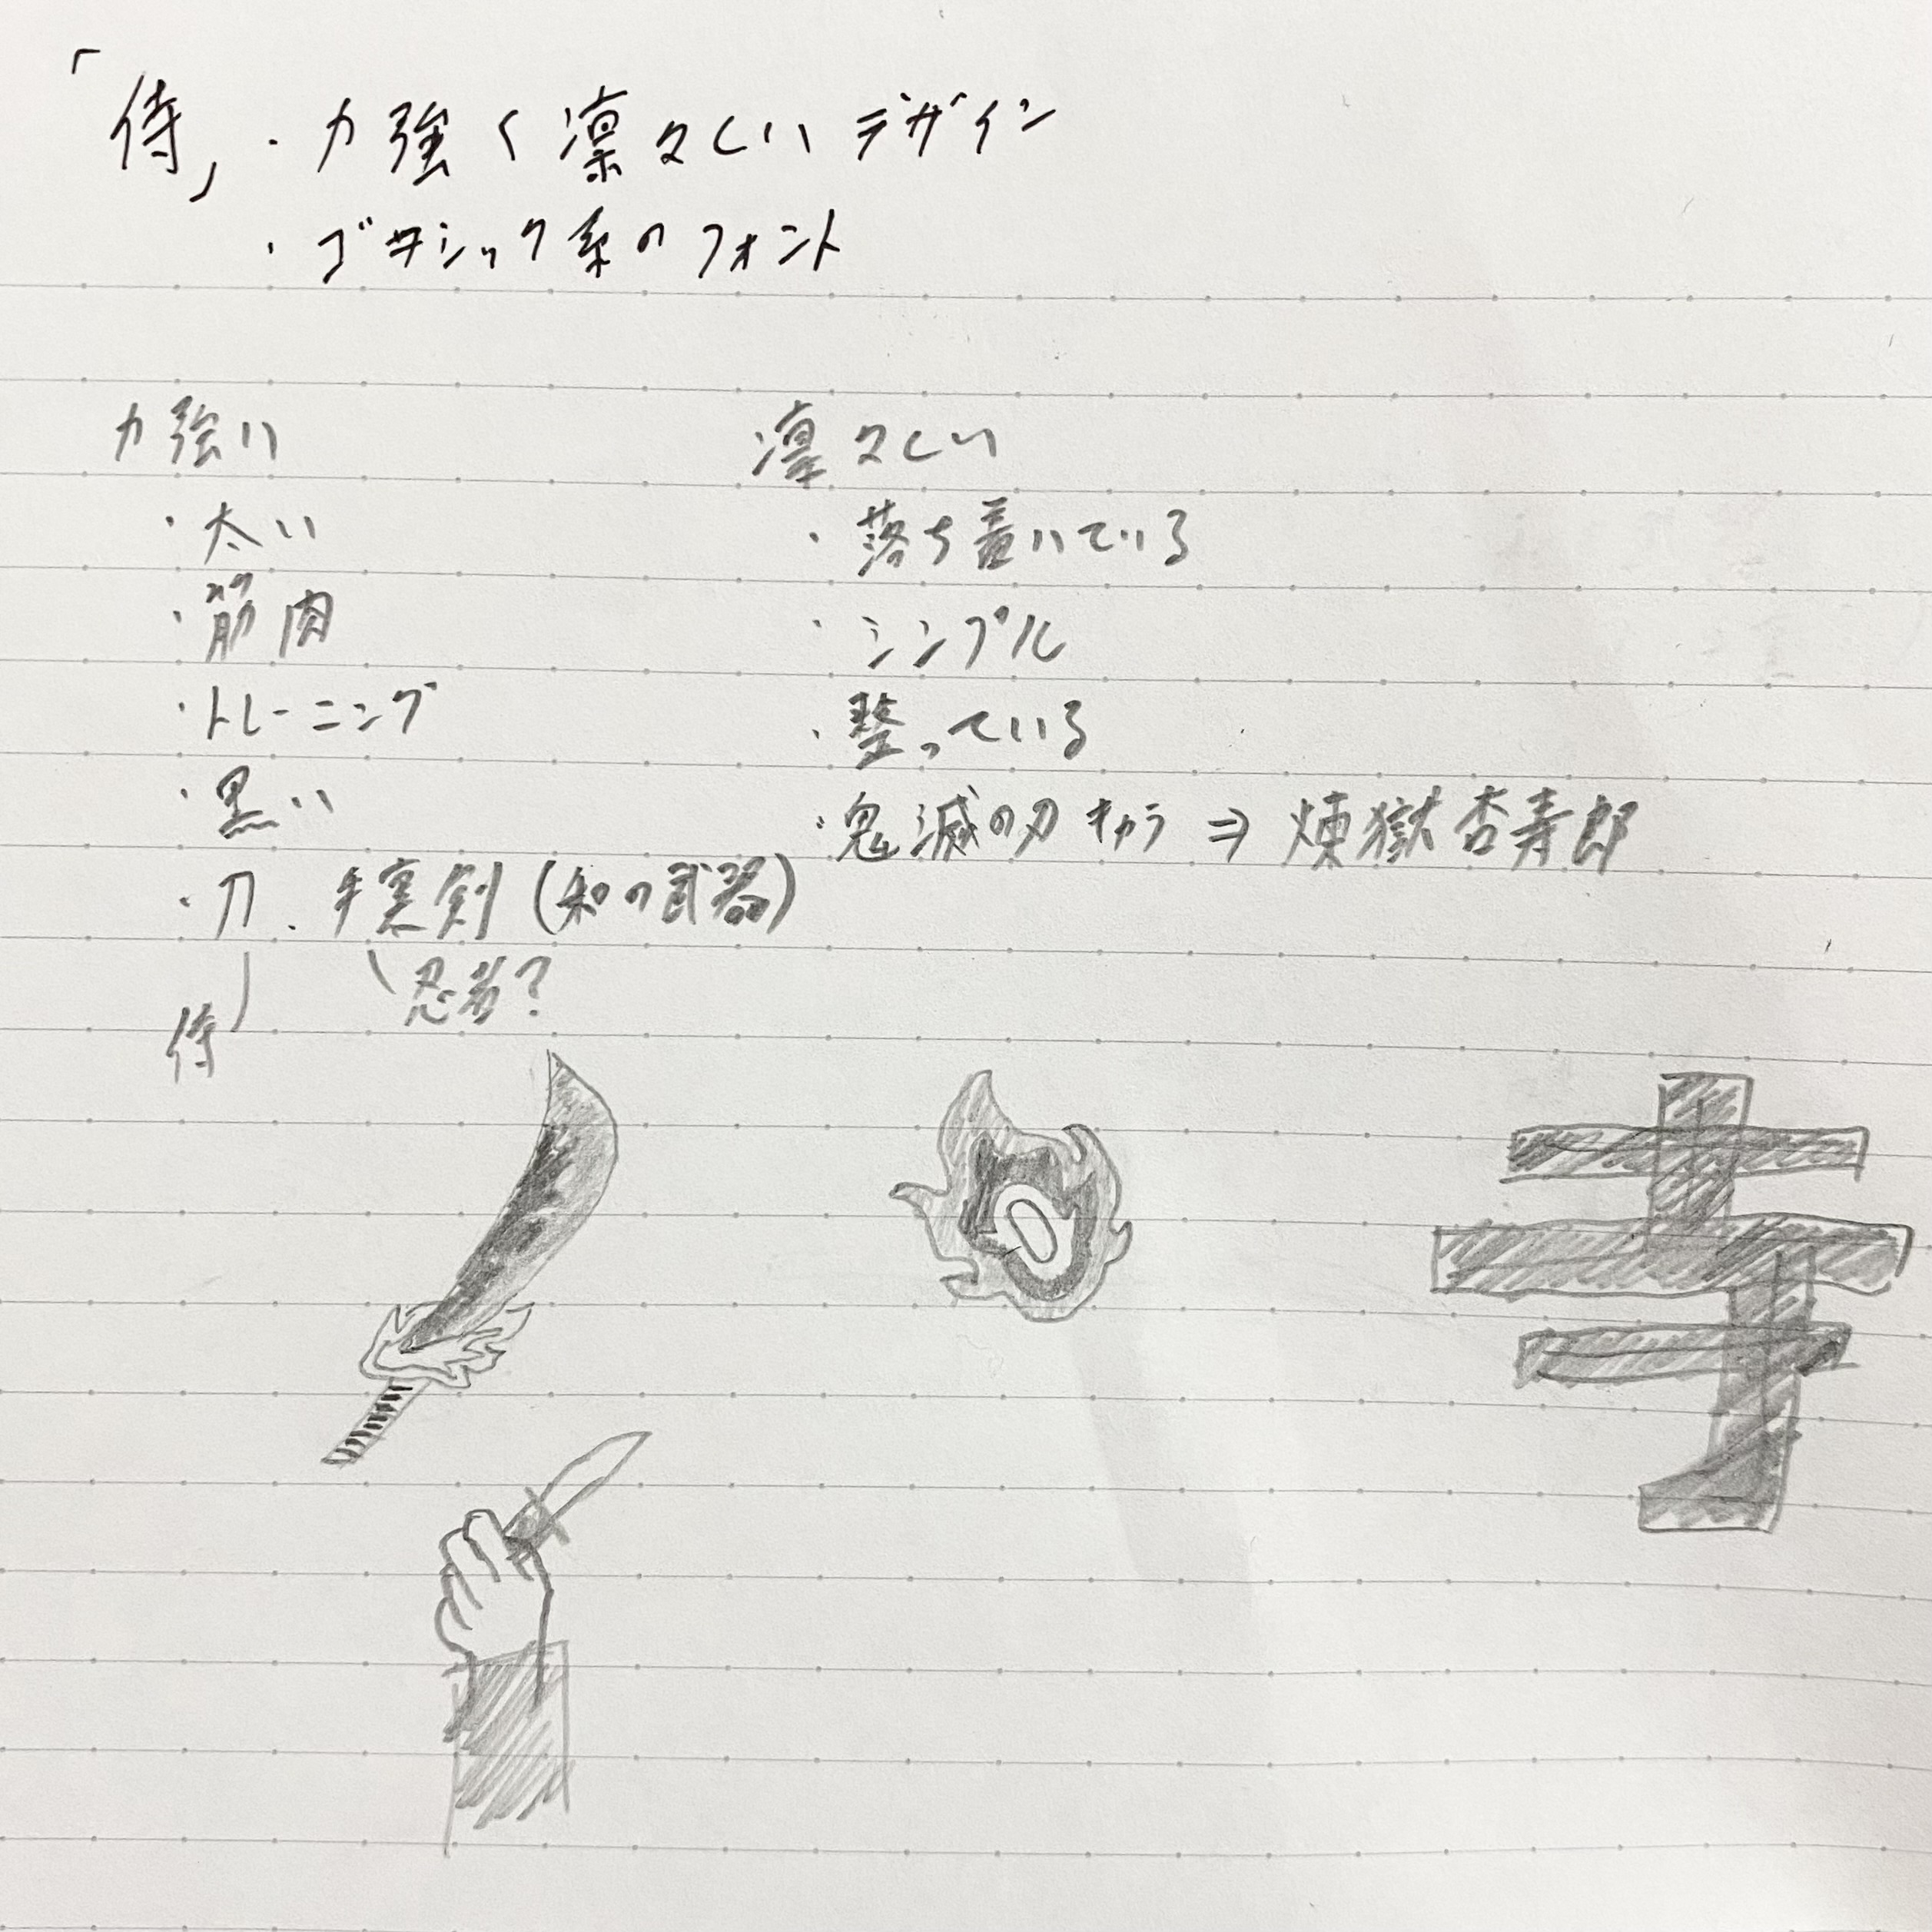 「侍」・力強く凛々しいデザイン
・ゴシック系のフォント
力強い
・太い
・筋肉
・トレーニング
・黒い
・刀、手裏剣(和の武器)
侍
忍者?
凛々しい
・落ち着いている
・シンプル
・整っている
・鬼滅の刃キャラ⇒煉獄杏寿郎
寺